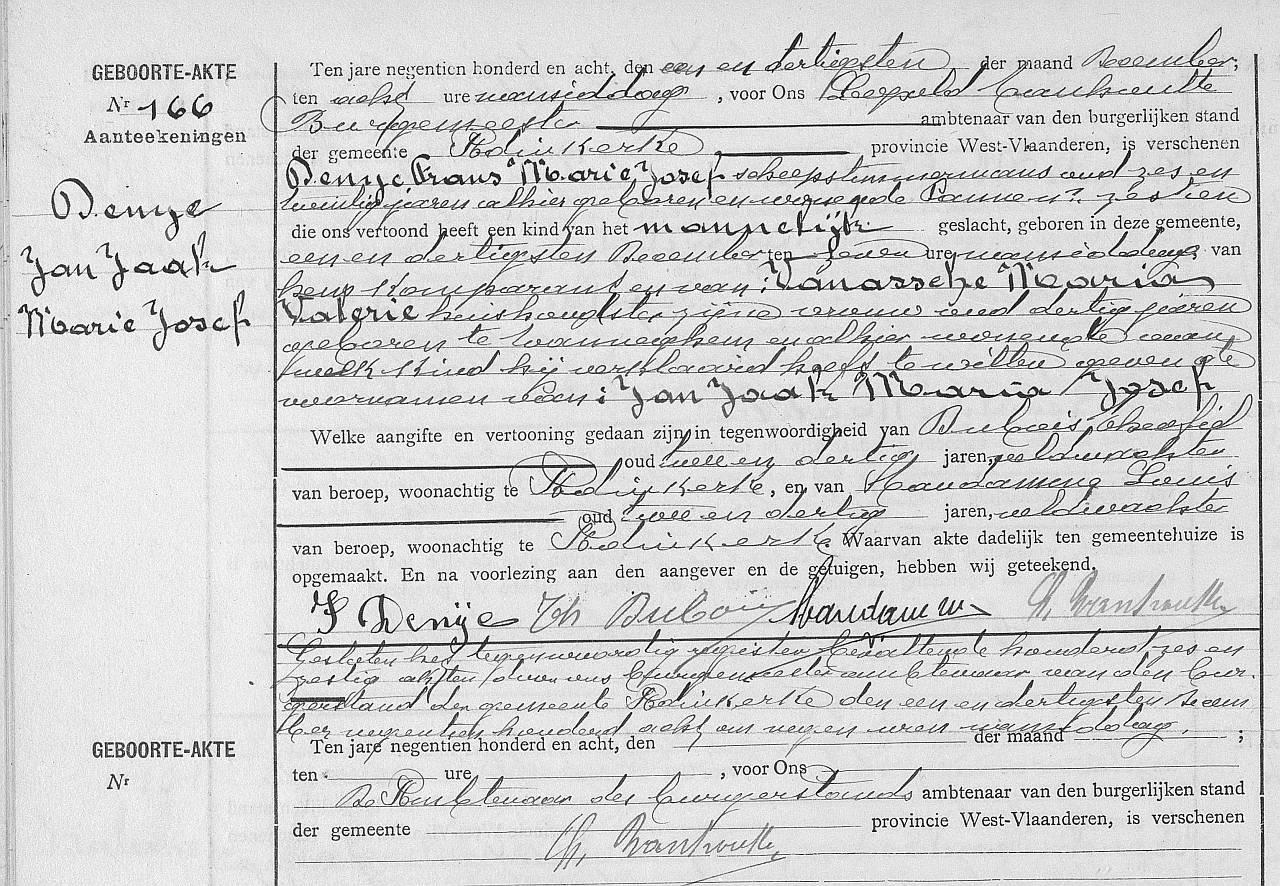 GEBOORTE-AKTE
Nr 166
Aanteekeningen
Denye
Jan Jaak
Marie Josef
Ten jare negentien honderd en acht, den een en dertigsten der maand December;
ten acht ure namiddag, voor Ons
Burgemeester ambtenaar van den burgerlijken stand
der gemeente Adinkerke, provincie West-Vlaanderen, is verschenen
Denye Frans Marie Josef scheepstimmermans oud zes en
twintig jaren alhier geboren en wonende Panne nr zestien
die ons vertoond heeft een kind van het mannelijk geslacht, geboren in deze gemeente,
een en dertigsten December ten zeven ure namiddag van
hem komparant en van: Vanassche Maria
Valerie huishoudster zijne vrouw oud dertig jaren
geboren te en alhier wonende aan
welk kind hij verklaard heeft te willen geven de
voornamen van: Jan Jaak Maria Josef
Welke aangifte en vertooning gedaan zijn in tegenwoordigheid van Dubois
oud twee en dertig jaren, veldwachter
van beroep, woonachtig te Adinkerke, en van Louis
oud twee en dertig jaren, veldwachter
van beroep, woonachtig te Adinkerke. Waarvan akte dadelijk ten gemeentehuize is
opgemaakt. En na voorlezing aan den aangever en de getuigen, hebben wij geteekend.
F Denije Th Dubois
Gesloten het tegenwoordig register bevattende honderd zes en
zestig akten door ons burgemeester ambtenaar van den bur-
gerstand der gemeente Adinkerke den een en dertigsten Decem
ber negentien honderd acht om negen uren namiddag.
GEBOORTE-AKTE
Nr
Ten jare negentien honderd en acht, den der maand ;
ten ure , voor Ons
De Ambtenaar des burgerstands ambtenaar van den burgerlijken stand
der gemeente provincie West-Vlaanderen, is verschenen